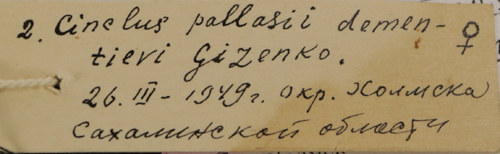 2. Cinclus pallasii demen- ♀
tievi Gizenko.
26. III - 1949г. окр. Холмска
Сахалинской области